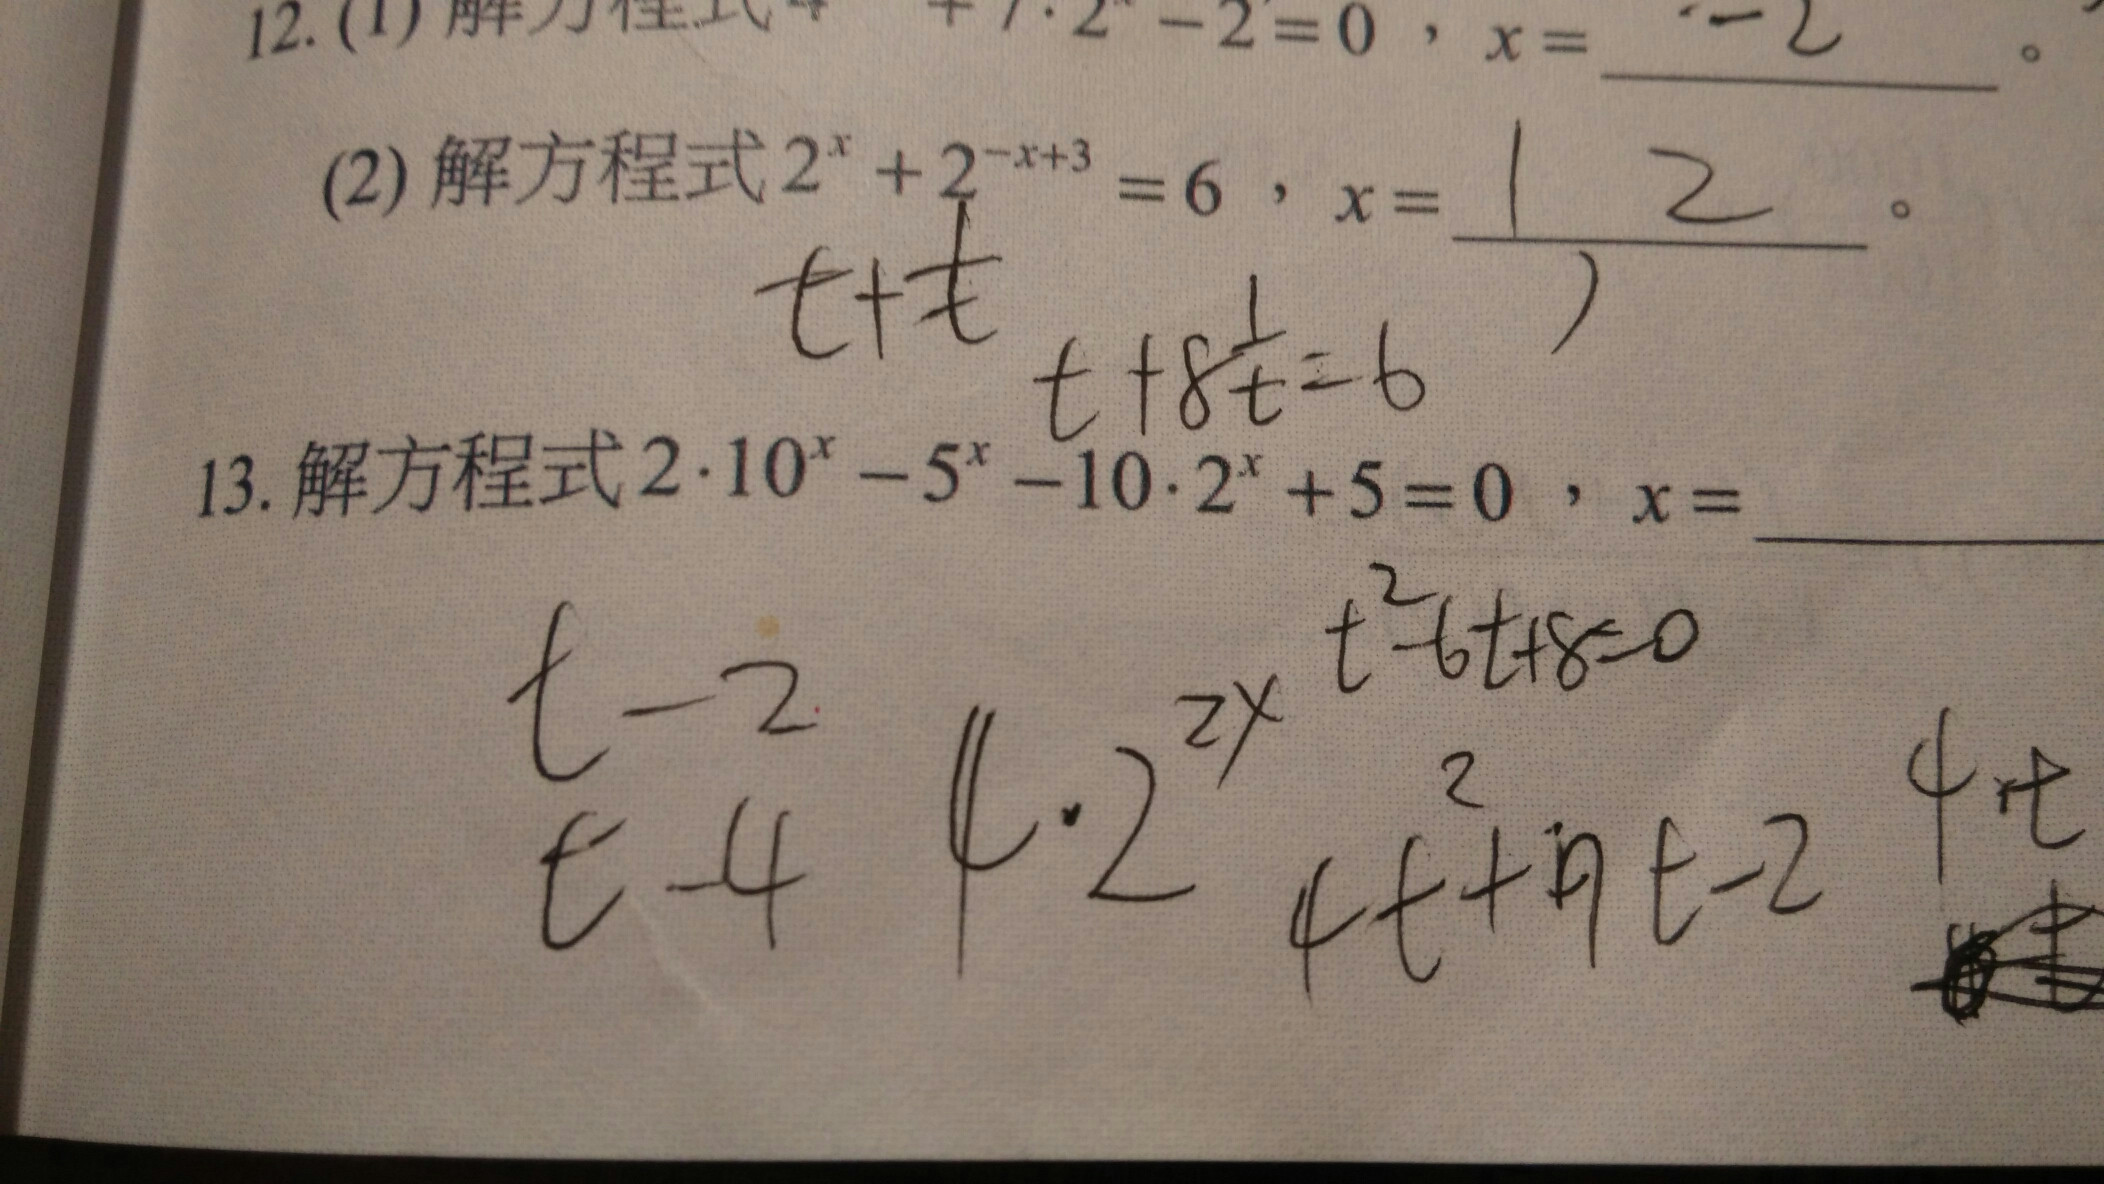 12. (1) 解方程式 4 + 7·2ˣ − 2 = 0 , x = -2 。
(2) 解方程式 2ˣ + 2⁻ˣ⁺³ = 6 , x = 1 , 2 。
t + t
t + 8 1/t = 6
13. 解方程式 2·10ˣ − 5ˣ − 10·2ˣ + 5 = 0 , x =
t² - 6t + 8 = 0
t - 2
4 · 2²ˣ
t - 4
4t² + 7t - 2
4
t